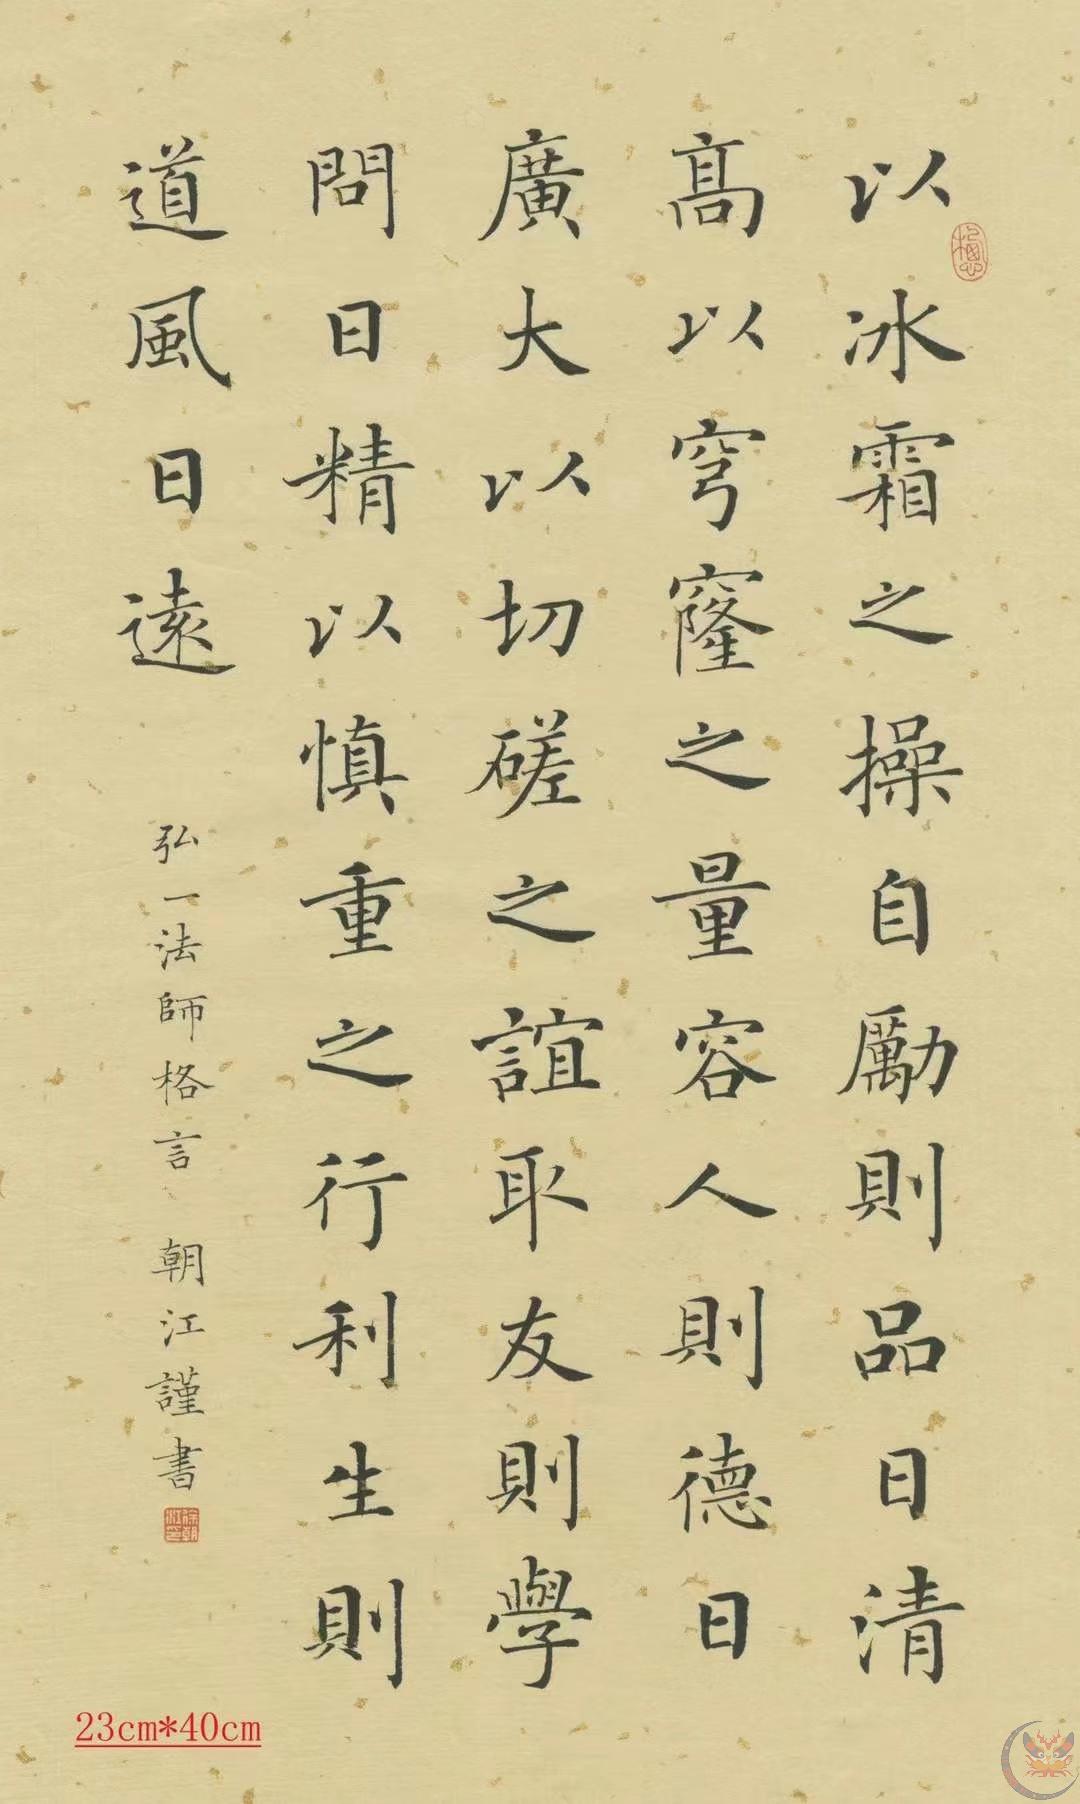 以冰霜之操自勵則品日清
髙以穹窿之量容人則德日
廣大以切磋之誼取友則學
問日精以慎重之行利生則
道風日遠
弘一法師格言 朝江謹書
徐朝江印
23cm*40cm